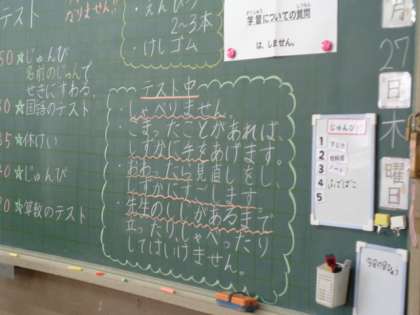 テスト
なりません。
・えんぴつ
2~3本
・けしゴム
学習についての質問
は、しません。
50☆じゅんび
名前のじゅんで
せきにすわる。
☆国語のテスト
35☆休けい
40☆じゅんび
☆算数のテスト
テスト中
・しゃべりません。
・こまったことがあれば、
しずかに手をあげます。
・おわったら見直しをし、
しずかにすごします。
・先生の
があるまで
立ったりしゃべったり
してはいけません。
月
27
日
木
曜
日
じゅんび
1
2
3 ノート
4 ふでばこ
5